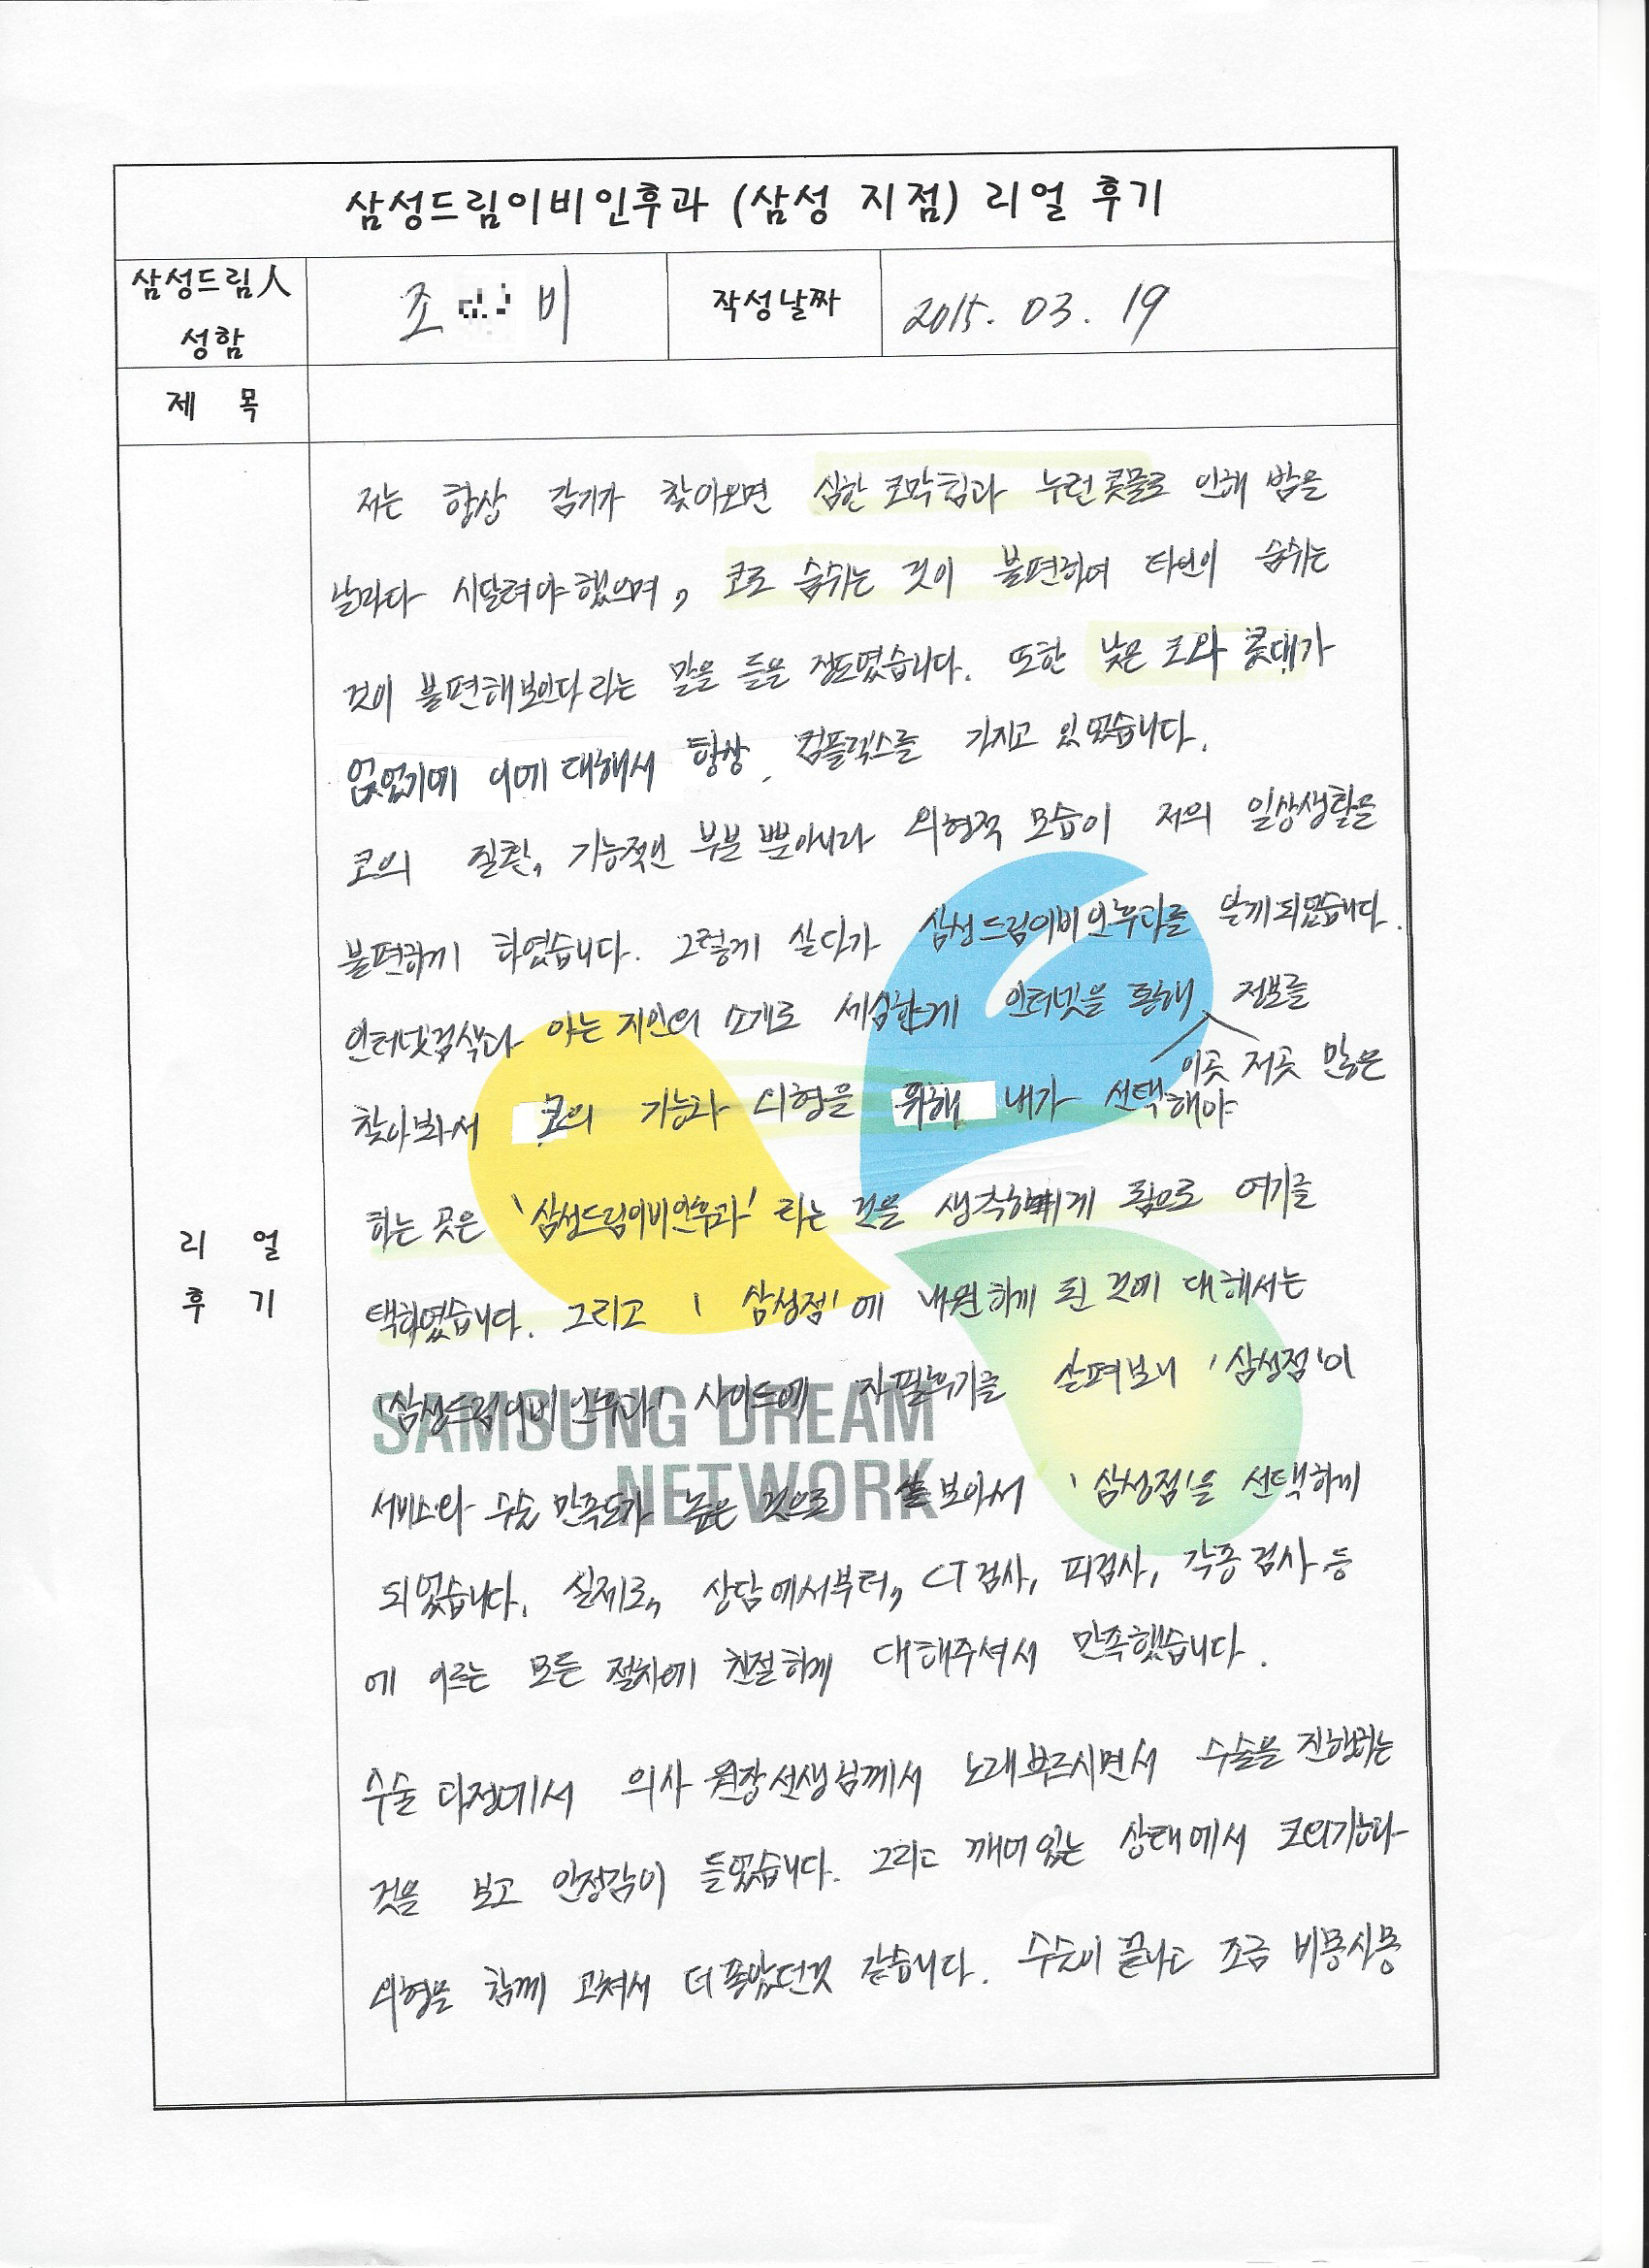 삼성드림이비인후과 (삼성 지점) 리얼 후기
삼성드림人
성함
조 비
작성날짜
2015. 03. 19
제 목
리 얼
후 기
저는 항상 감기가 찾아오면 심한 코막힘과 누런 콧물로 인해 밤을
날마다 시달려야 했으며, 코로 숨쉬는 것이 불편하여 타인이 숨쉬는
것이 불편해보인다라는 말을 들을 정도였습니다. 또한 낮은 코와 콧대가
없었기에 이에 대해서 항상 컴플렉스를 가지고 있었습니다.
코의 질환, 기능적인 부분 뿐아니라 외형적 모습이 저의 일상생활을
불편하게 하였습니다. 그렇게 살다가 삼성드림이비인후과를 알게되었습니다.
인터넷검색과 아는 지인의 소개로 세심하게 인터넷을 통해 정보를
이곳 저곳 많은
찾아봐서 코의 기능과 외형을 위해 내가 선택해야
하는 곳은 '삼성드림이비인후과' 라는 것을 생각하게 됨으로 여기를
택하였습니다. 그리고 '삼성점'에 내원하게 된 것에 대해서는
'삼성드림이비인후과' 사이트에 자필후기를 살펴보니 '삼성점'이
서비스와 수술 만족도가 높은 것으로 보아서 '삼성점'을 선택하게
되었습니다. 실제로, 상담에서부터, CT검사, 피검사, 각종 검사 등
에 이르는 모든 절차에 친절하게 대해주셔서 만족했습니다.
수술 과정에서 의사 원장선생님께서 노래부르시면서 수술을 진행하는
것을 보고 안정감이 들었습니다. 그리고 깨어있는 상태에서 코의기능과
외형을 함께 고쳐서 더 좋았던것 같습니다. 수술이 끝나고 조금 비몽사몽
SAMSUNG DREAM
NETWORK